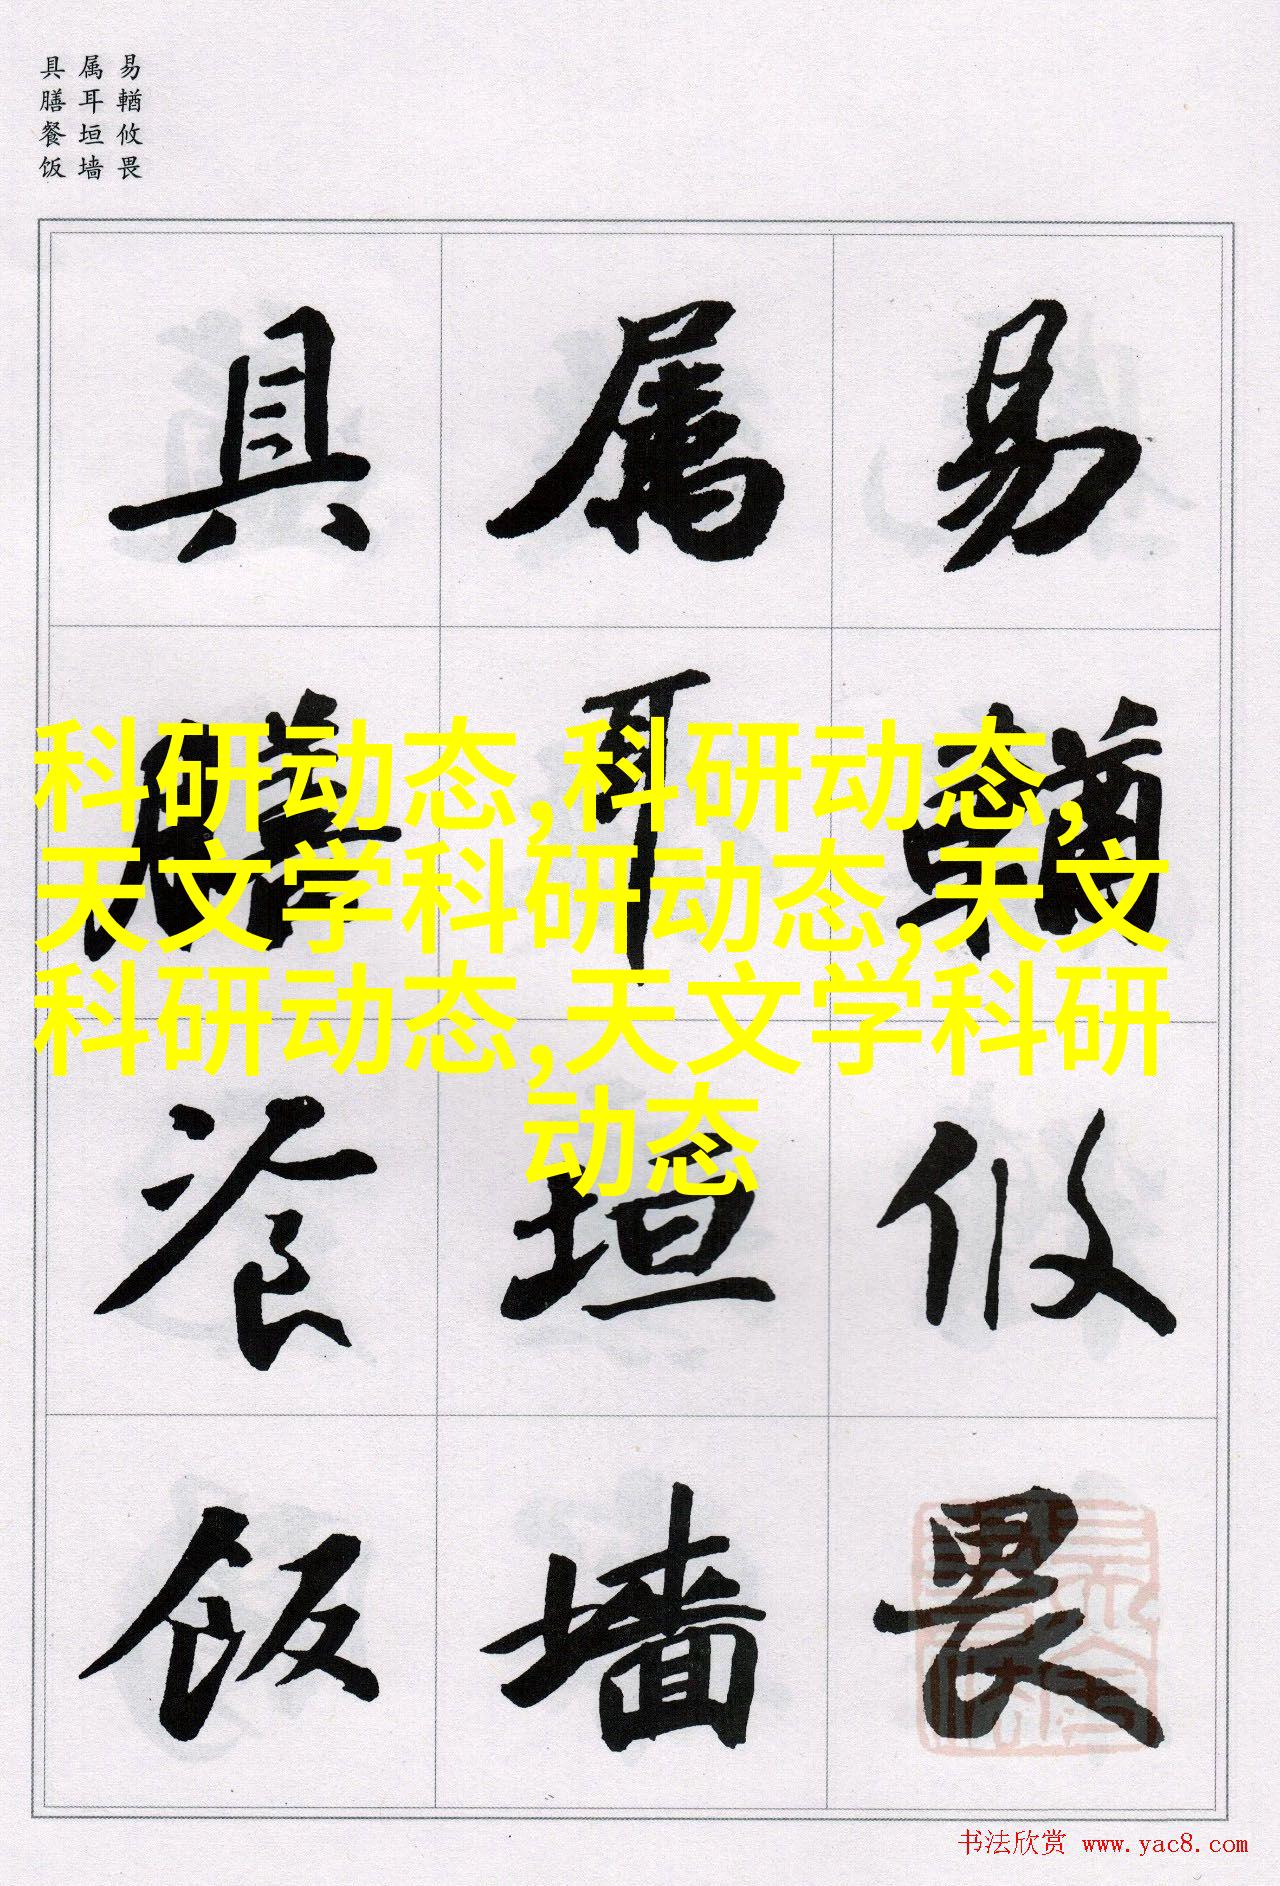 易輶攸畏
属耳垣墙
具膳餐饭
易輶攸畏
属耳垣墙
具膳飡饭
科研动态,科研动态,
天文学科研动态,天文
科研动态,天文学科研
动态
书法欣赏 www.yac8.com